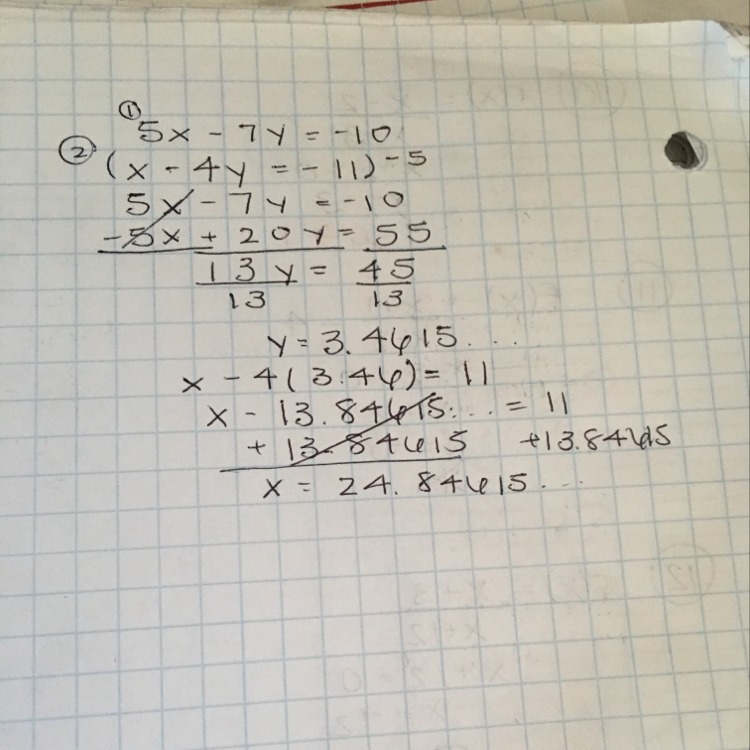 ①
5x - 7y = -10
② (x - 4y = -11) -5
5x - 7y = -10
-5x + 20y = 55
13y = 45
13 13
y = 3.4615...
x - 4(3.46) = 11
x - 13.84615... = 11
+ 13.84615 +13.84615
x = 24.84615...